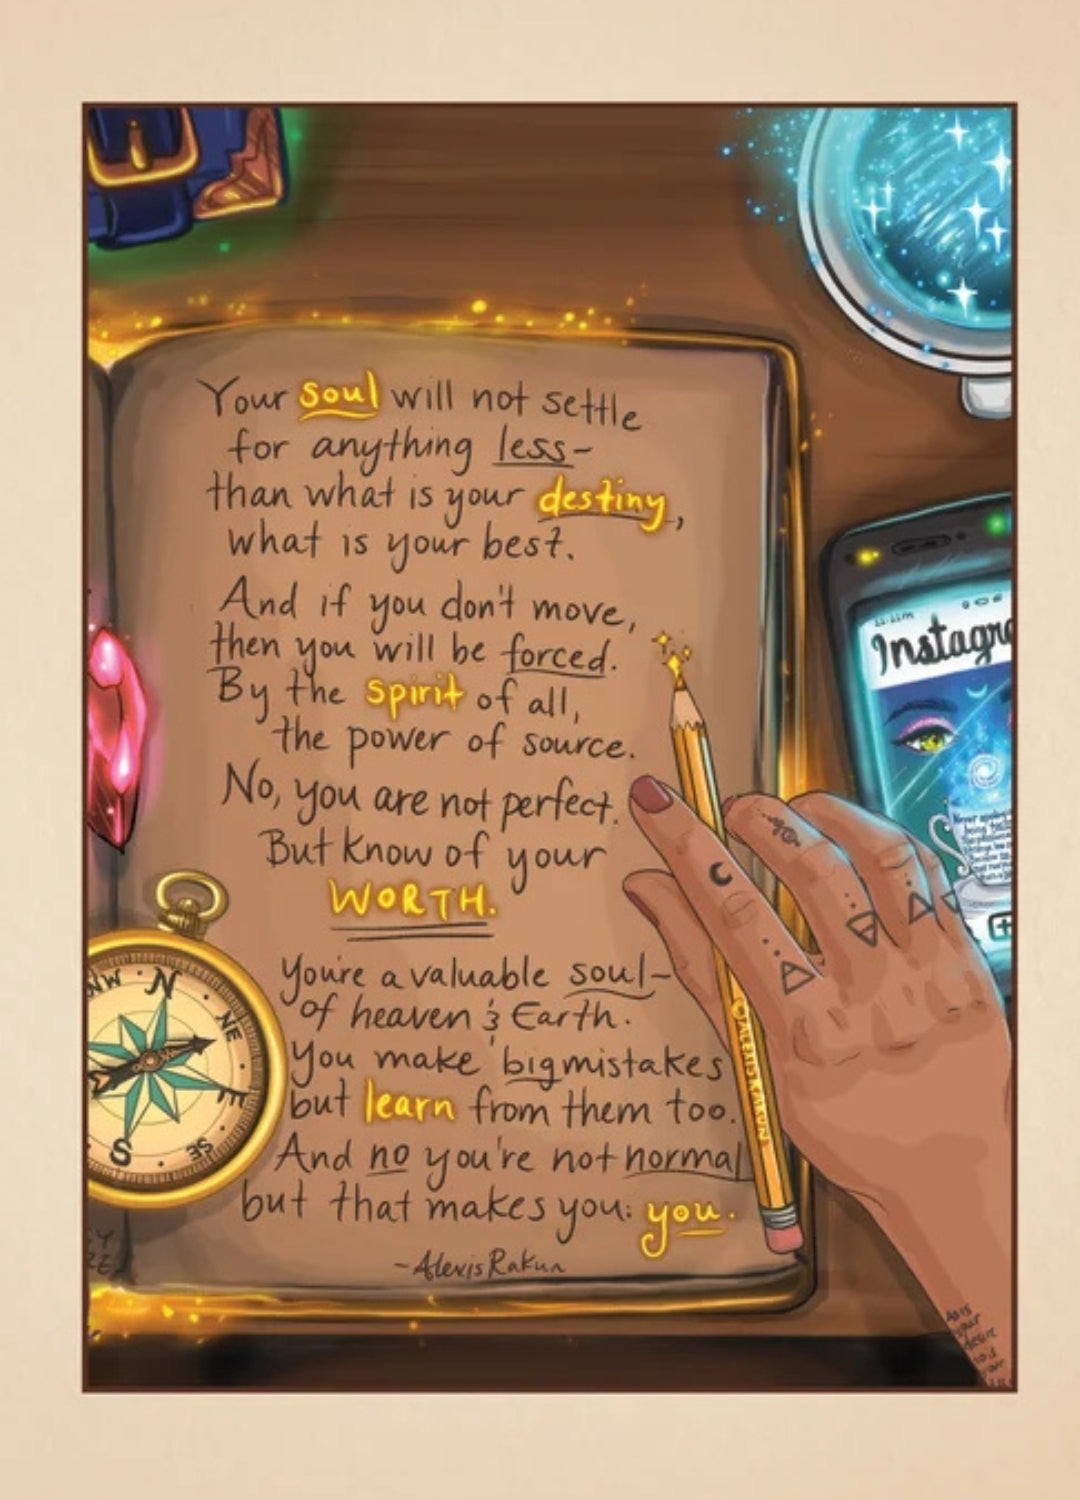 Your soul will not settle
for anything less-
than what is your destiny,
what is your best.
And if you don't move,
then you will be forced.
By the spirit of all,
the power of source.
No, you are not perfect.
But know of your
WORTH.
You're a valuable soul-
of heaven & Earth.
You make big mistakes
but learn from them too.
And no you're not normal
but that makes you: you.
~Alexis Rakun
11:11
Instagra
N
NE
E
SE
S
NW
@ALEXISRAKUN
As is
your
desire
so is
your